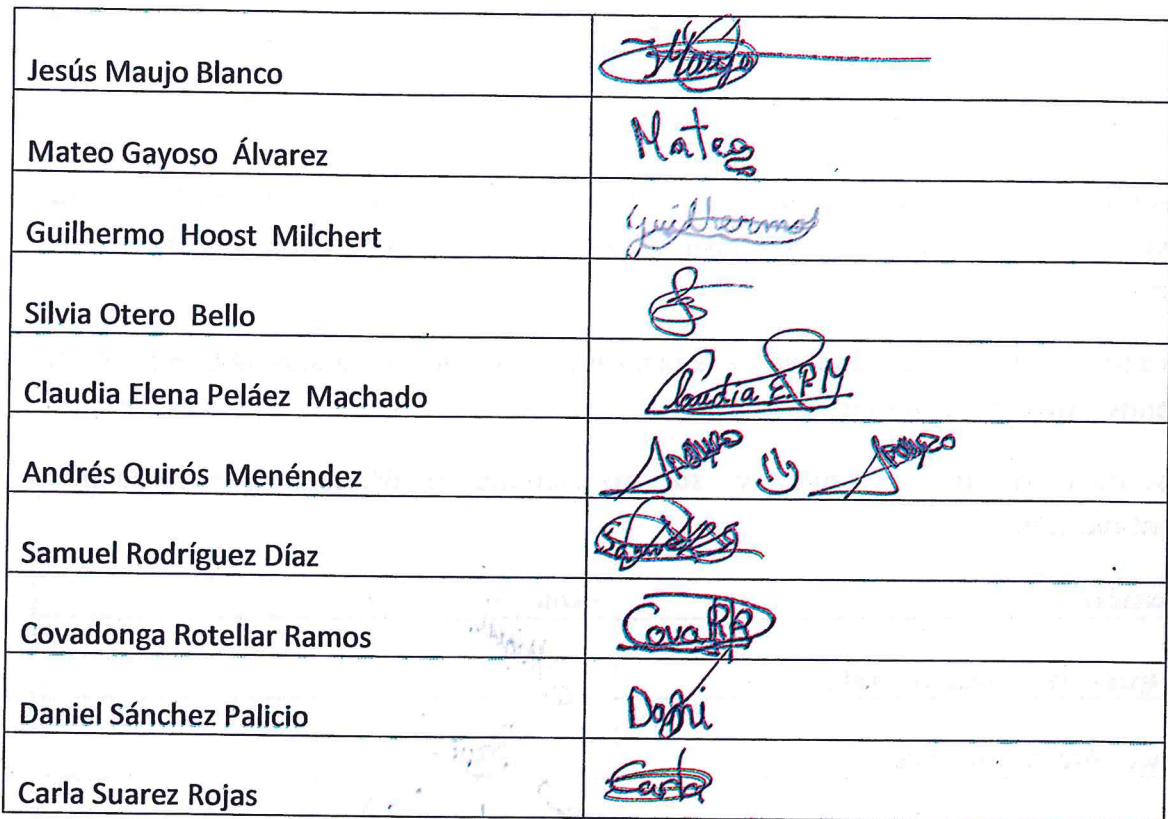 Jesús Maujo Blanco JMaujo
Mateo Gayoso Álvarez Mateo
Guilhermo Hoost Milchert Guilhermo
Silvia Otero Bello
Claudia Elena Peláez Machado Claudia E.P.M
Andrés Quirós Menéndez
Samuel Rodríguez Díaz
Covadonga Rotellar Ramos Cova RR
Daniel Sánchez Palicio
Carla Suarez Rojas Carla